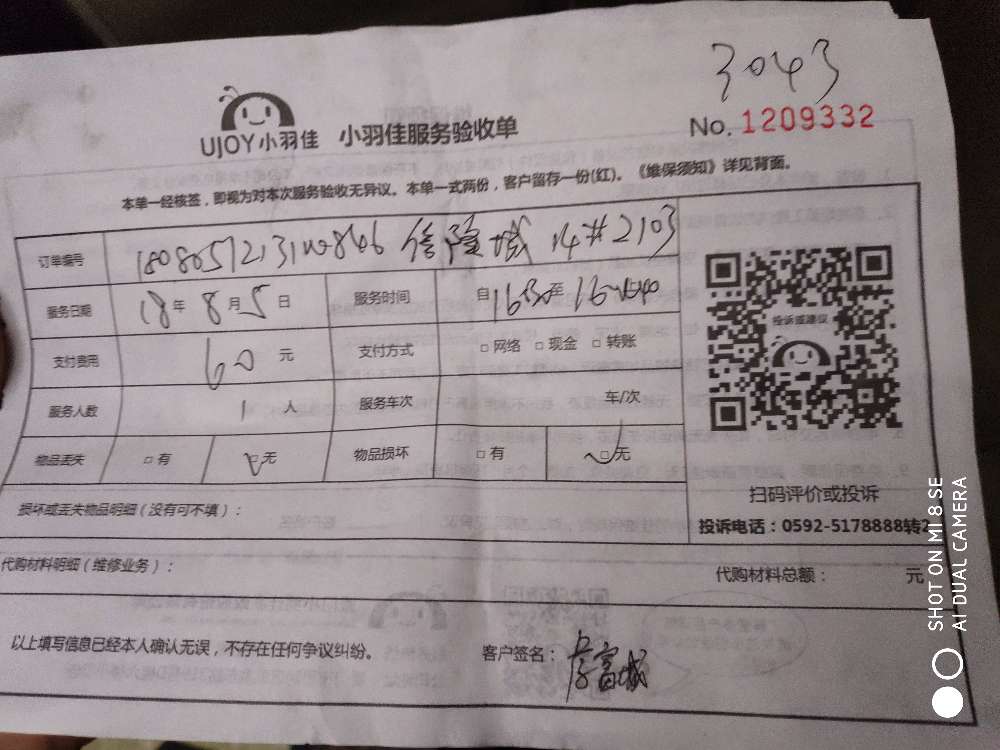 3043
UJOY小羽佳 小羽佳服务验收单 No. 1209332
本单一经核签，即视为对本次服务验收无异议。本单一式两份，客户留存一份(红)。《维保须知》详见背面。
订单编号 信隆城 14#2103
服务日期 18年8月5日 服务时间 自16:30至
支付费用 60元 支付方式 □网络 □现金 □转账
服务人数 1人 服务车次 车/次
物品丢失 □有 □无 物品损坏 □有 □无
投诉或建议
扫码评价或投诉
投诉电话：0592-5178888转2
损坏或丢失物品明细（没有可不填）：
代购材料明细（维修业务）： 代购材料总额： 元
以上填写信息已经本人确认无误，不存在任何争议纠纷。 客户签名：
SHOT ON MI 8 SE
AI DUAL CAMERA